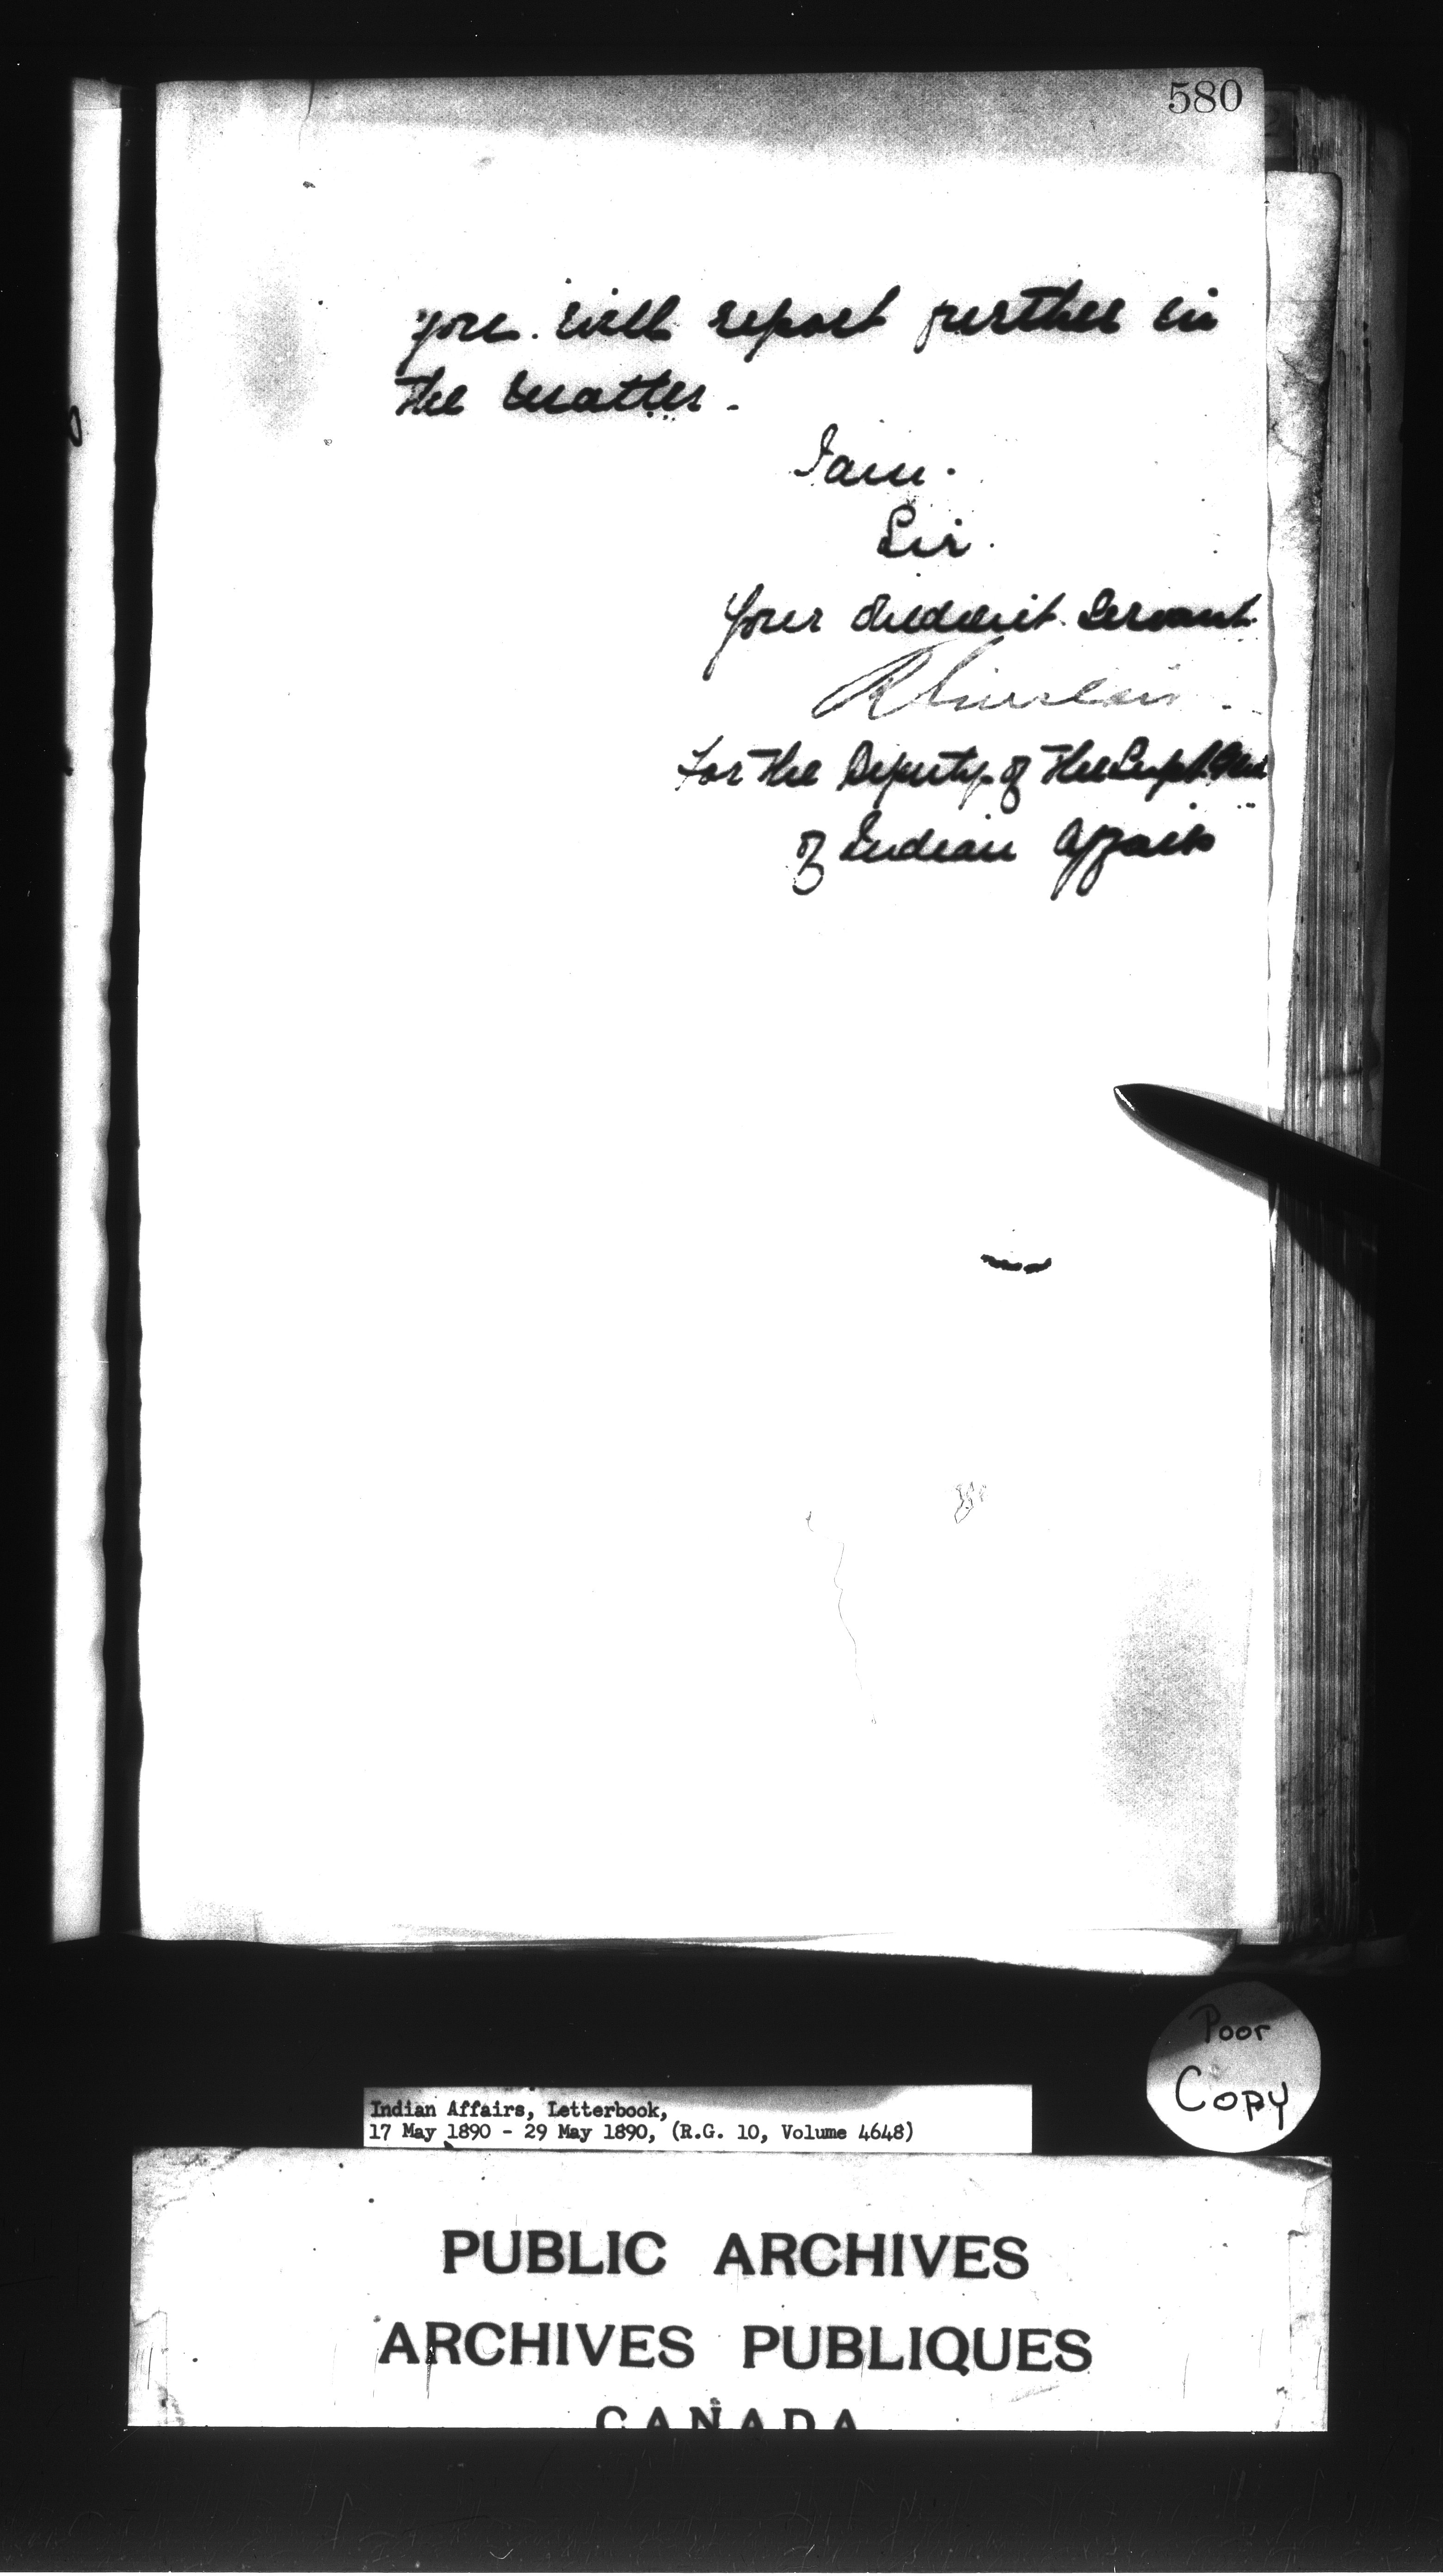 580
you will report further in
the matter.
I am.
Sir.
Your obedient Servant.
R Sinclair.
For the Deputy of the Supt. Genl
of Indian Affairs
Poor
Copy
Indian Affairs, Letterbook,
17 May 1890 - 29 May 1890, (R.G. 10, Volume 4648)
PUBLIC ARCHIVES
ARCHIVES PUBLIQUES
CANADA